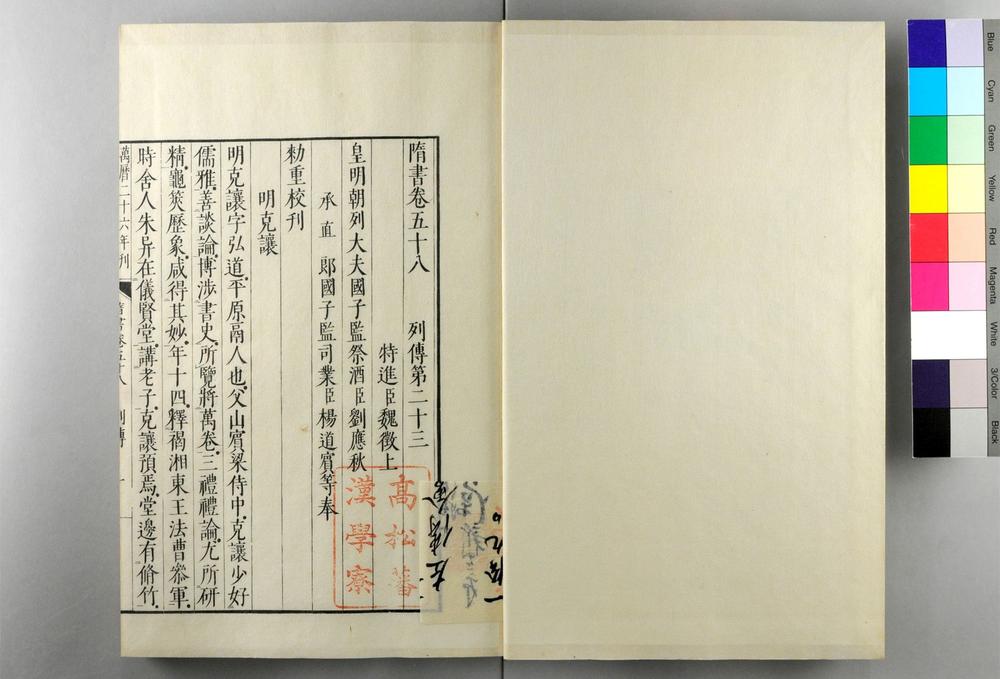 隋書卷五十八　列傳第二十三
特進臣魏徵上
皇明朝列大夫國子監祭酒臣劉應秋
承直郎國子監司業臣楊道賓等奉
勑重校刊
明克讓
明克讓字弘道平原鬲人也父山賓梁侍中克讓少好
儒雅善談論博涉書史所覽將萬卷三禮禮論尤所研
精龜筴歷象咸得其妙年十四釋褐湘東王法曹參軍
時舍人朱异在儀賢堂講老子克讓預焉堂邊有脩竹
萬曆二十六年刊　隋書卷五十八　列傳　一
高松蕃
漢學寮
Blue
Cyan
Green
Yellow
Red
Magenta
White
3/Color
Black